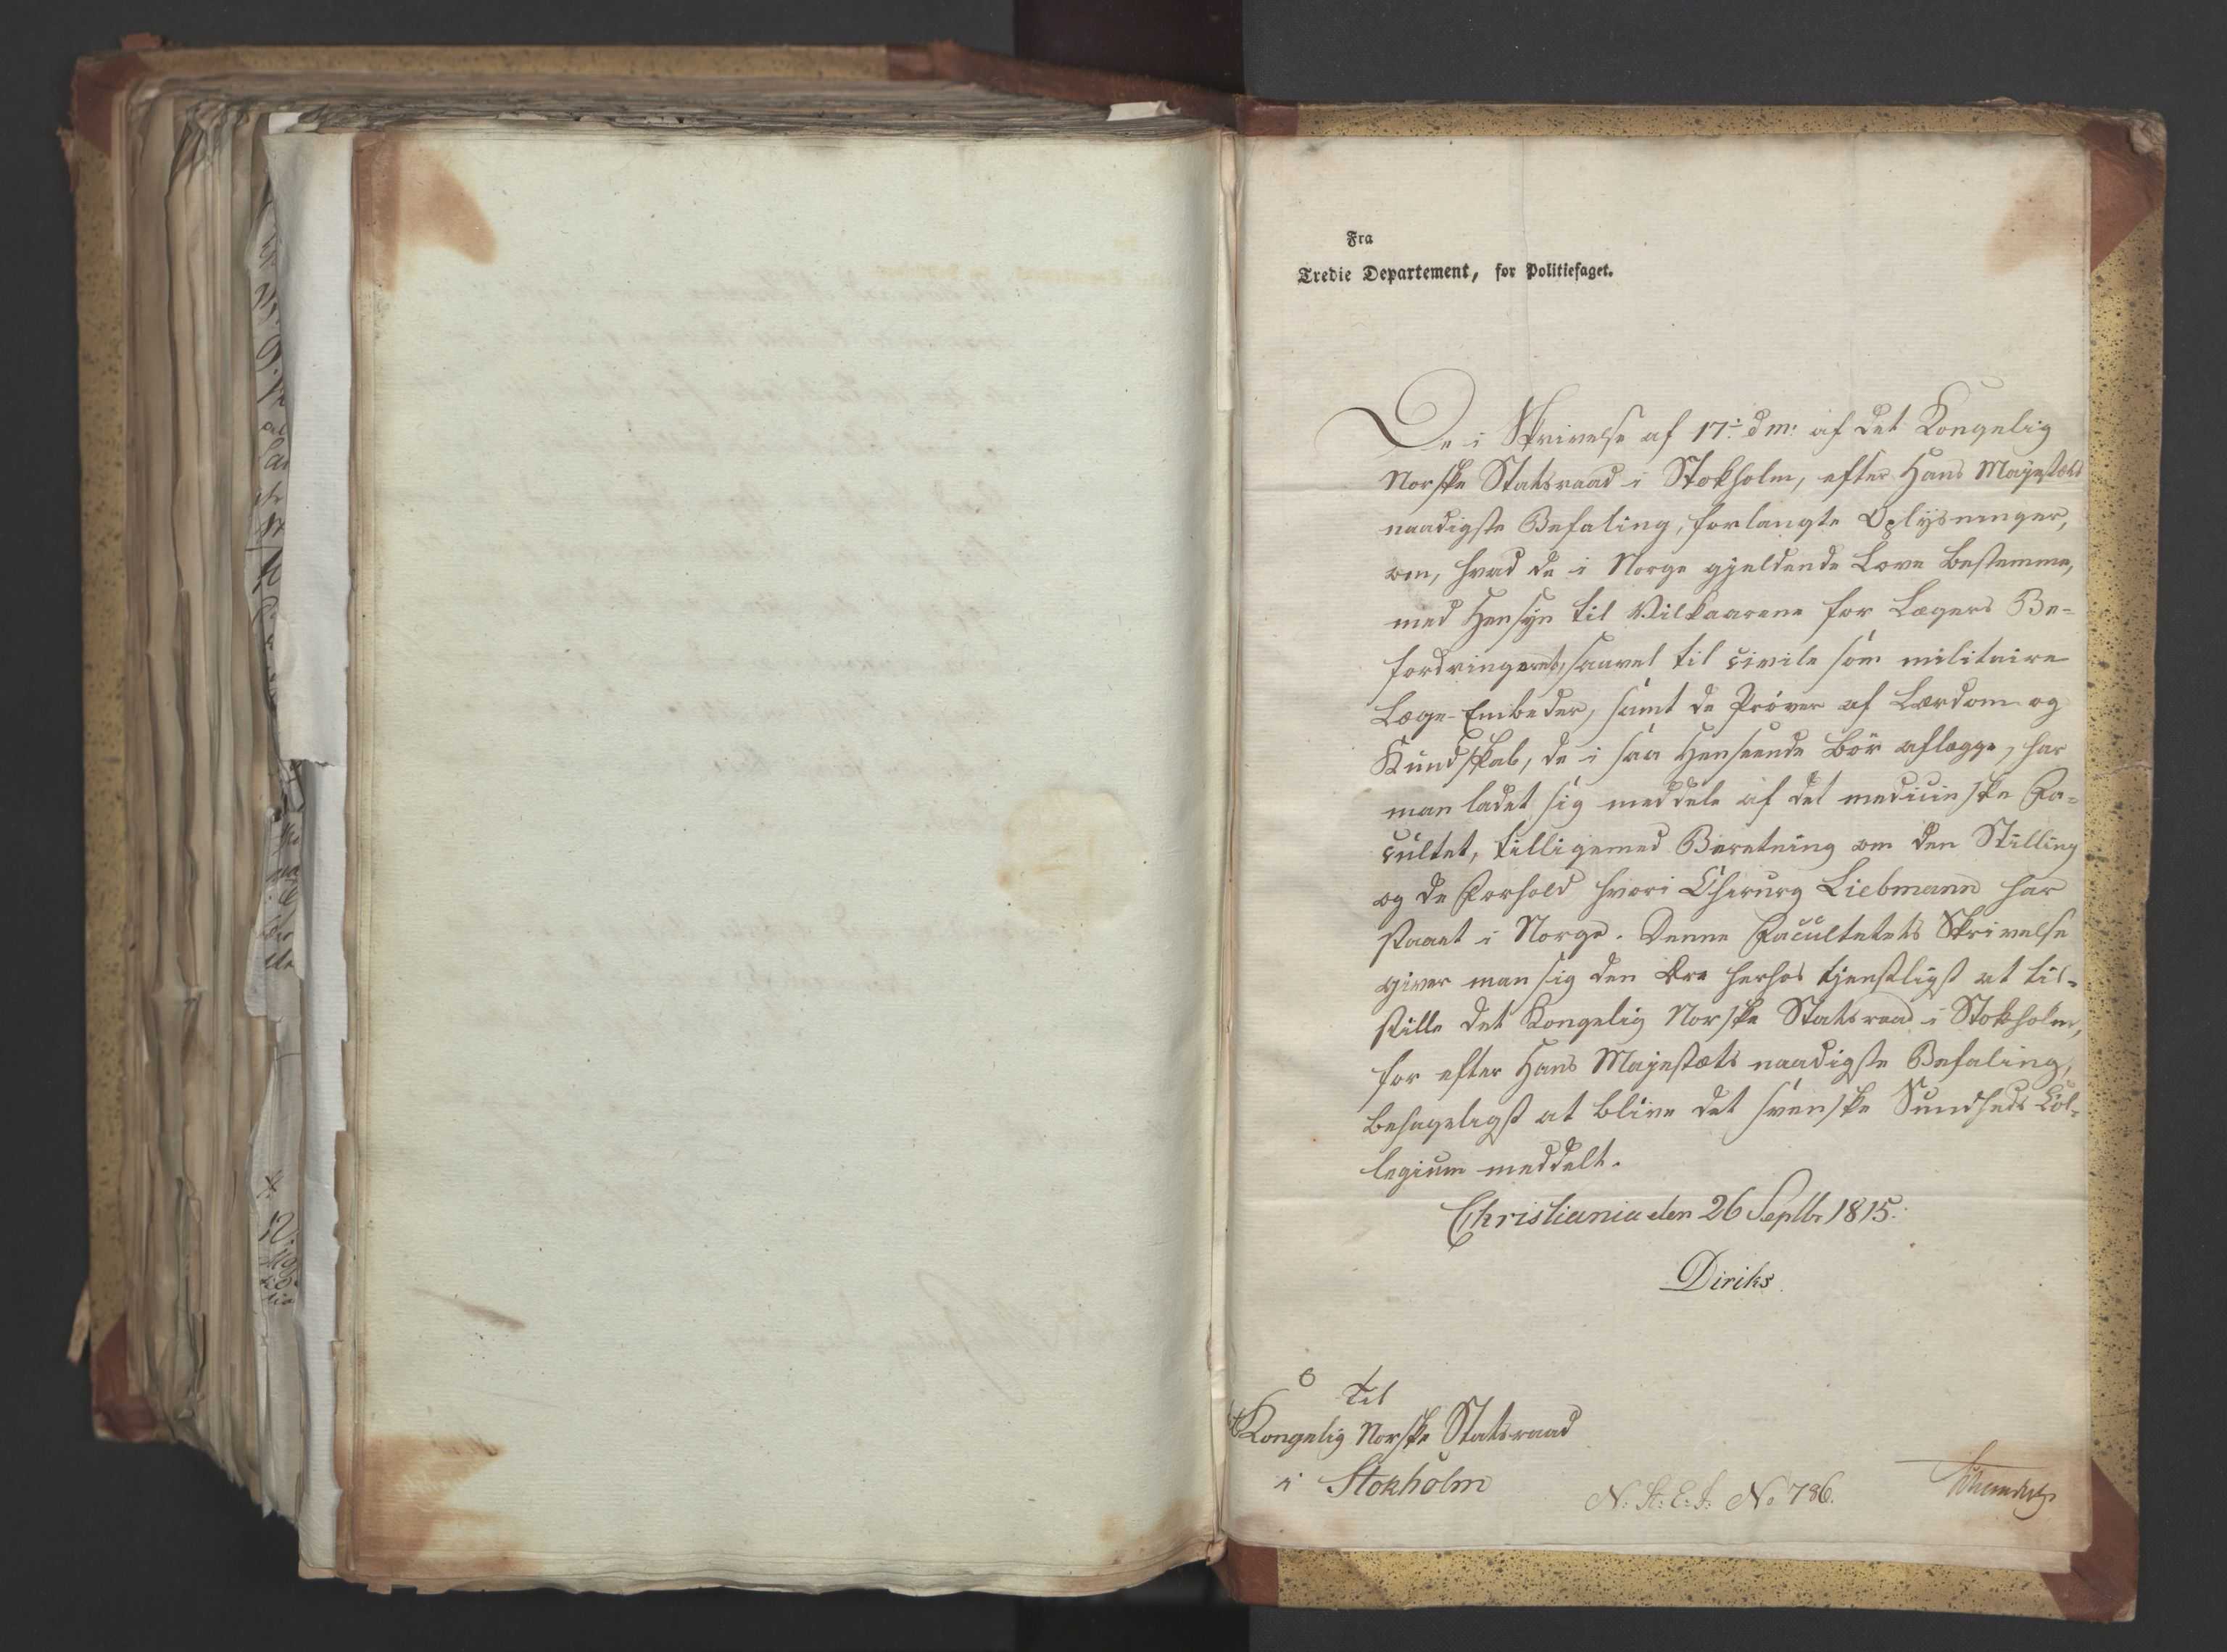 Fra
Tredie Departement, for Politiefaget.
De i Skrivelse af 17: d m: af det Kongelig
Norske Statsraad i Stokholm, efter Hans Majestæts
naadigste Befaling, forlangte Oplysninger,
om, hvad de i Norge gjeldende Love bestemme,
med Hensyn til Vilkaarene for Lægers Be-
fordringeret, saavel til civile som militaire
Læge-Embeder, samt de Prøver af Lærdom og
Kundskab, de i saa Henseende bör aflægge, har
man ladet sig meddele af det medicinske Fa-
cultet, tilligemed Beretning om den Stilling
og de Forhold hvori Chirurg Liebmann har
staaet i Norge. Denne Facultetets Skrivelse
giver man sig den Ære herhos tjenstligst at til-
stille det Kongelig Norske Statsraad i Stokholm,
for efter Hans Majestæts naadigste Befaling,
behageligst at blive det svenske Sundheds Col-
legium meddelt.
Christiania den 26 Septbr 1815.
Diriks.
Til
Kongelig Norske Statsraad
i Stokholm
N: St: E: J: No 786.